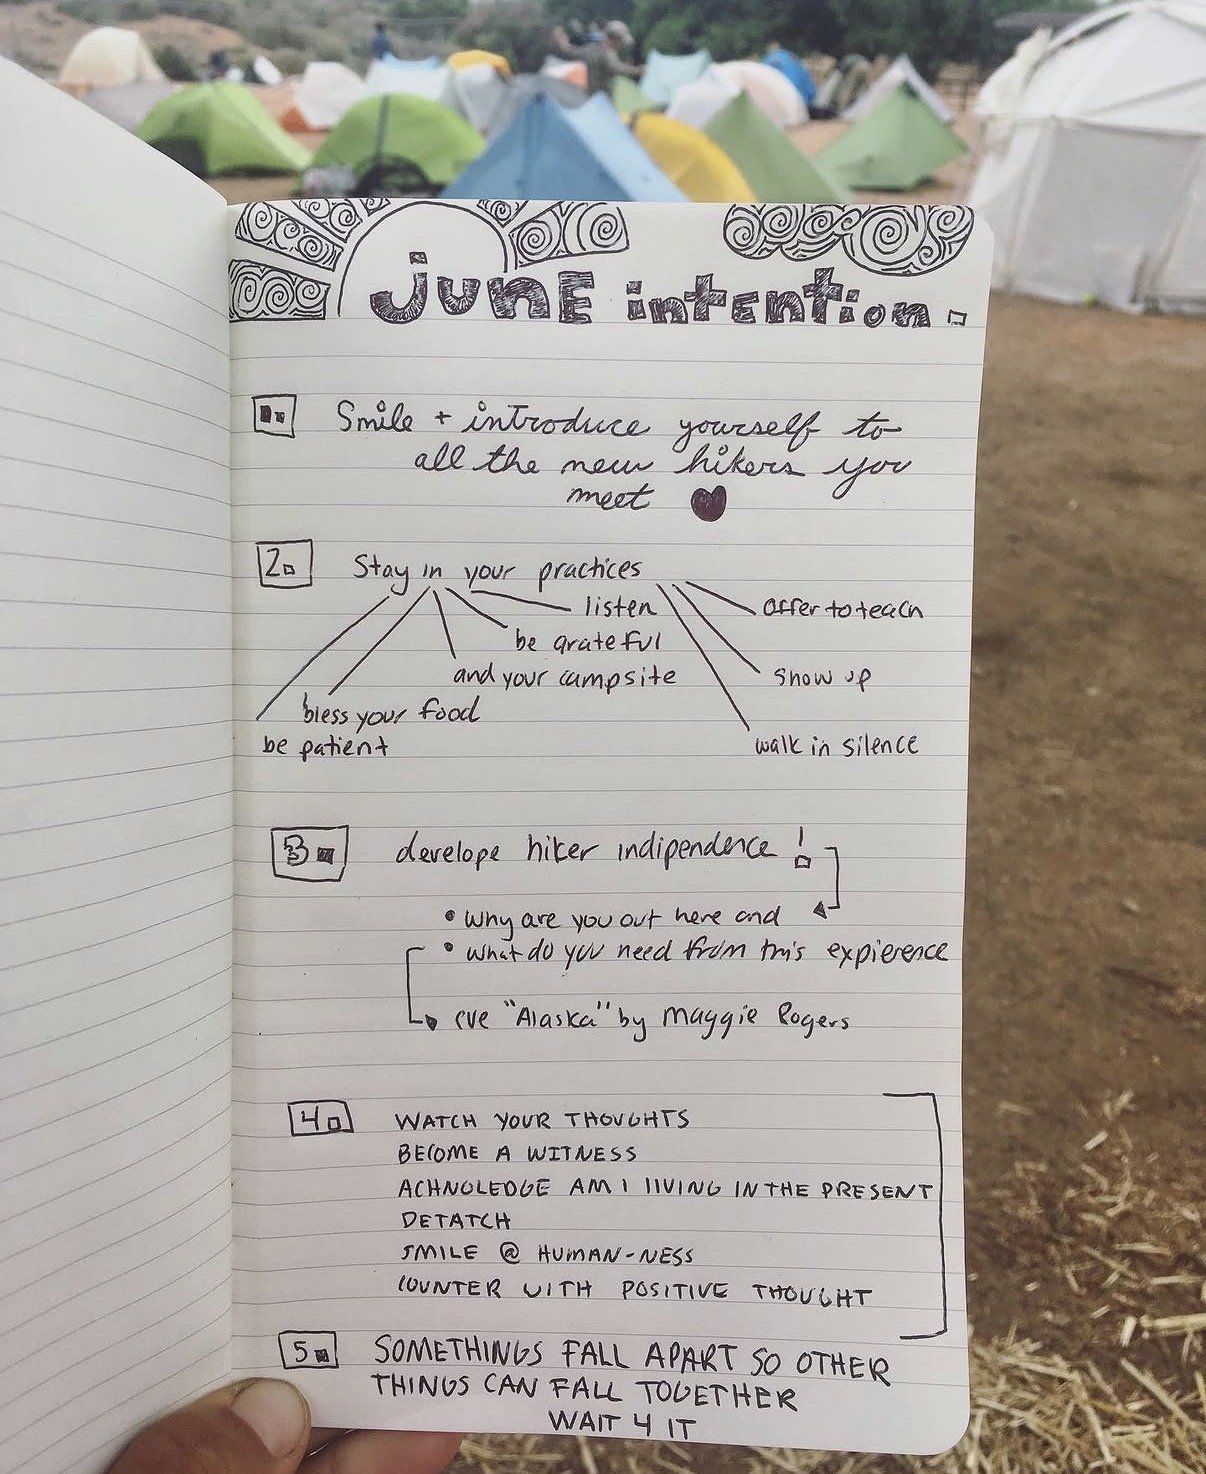 June intention.
1. Smile + introduce yourself to
all the new hikers you
meet
2. Stay in your practices
listen
offer to teach
be grateful
and your campsite
show up
bless your food
be patient
walk in silence
3. develope hiker indipendence !
• why are you out here and
• what do you need from this expierence
cue "Alaska" by Maggie Rogers
4. WATCH YOUR THOUGHTS
BECOME A WITNESS
ACHNOLEDGE AM I LIVING IN THE PRESENT
DETATCH
SMILE @ HUMAN-NESS
COUNTER WITH POSITIVE THOUGHT
5. SOMETHINGS FALL APART SO OTHER
THINGS CAN FALL TOGETHER
WAIT 4 IT